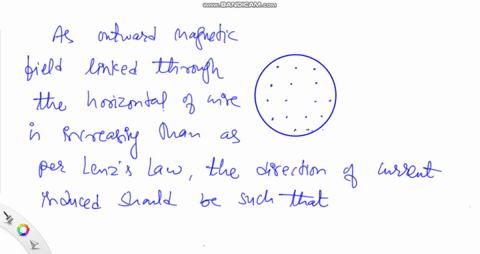 WWW.BANDICAM.COM
As outward magnetic
field linked through
the horizontal of wire
is increasing than as
per Lenz's Law, the direction of current
induced should be such that